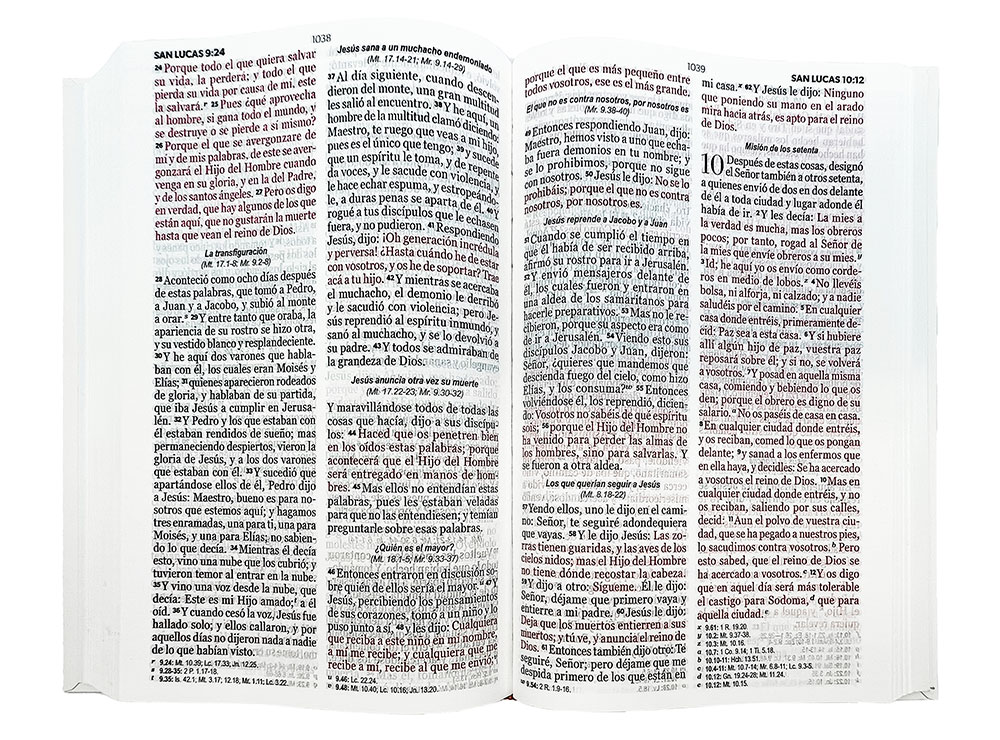 SAN LUCAS 9:24
1038
24 Porque todo el que quiera salvar
su vida, la perderá; y todo el que
pierda su vida por causa de mí, este
la salvará. r 25 Pues ¿qué aprovecha
al hombre, si gana todo el mundo, y
se destruye o se pierde a sí mismo?
26 Porque el que se avergonzare de
mí y de mis palabras, de este se aver-
gonzará el Hijo del Hombre cuando
venga en su gloria, y en la del Padre,
y de los santos ángeles. 27 Pero os digo
en verdad, que hay algunos de los que
están aquí, que no gustarán la muerte
hasta que vean el reino de Dios.
La transfiguración
(Mt. 17.1-8; Mr. 9.2-8)
28 Aconteció como ocho días después
de estas palabras, que tomó a Pedro,
a Juan y a Jacobo, y subió al monte
a orar. s 29 Y entre tanto que oraba, la
apariencia de su rostro se hizo otra,
y su vestido blanco y resplandeciente.
30 Y he aquí dos varones que habla-
ban con él, los cuales eran Moisés y
Elías; 31 quienes aparecieron rodeados
de gloria, y hablaban de su partida,
que iba Jesús a cumplir en Jerusa-
lén. 32 Y Pedro y los que estaban con
él estaban rendidos de sueño; mas
permaneciendo despiertos, vieron la
gloria de Jesús, y a los dos varones
que estaban con él. 33 Y sucedió que
apartándose ellos de él, Pedro dijo
a Jesús: Maestro, bueno es para no-
sotros que estemos aquí; y hagamos
tres enramadas, una para ti, una para
Moisés, y una para Elías; no sabien-
do lo que decía. 34 Mientras él decía
esto, vino una nube que los cubrió; y
tuvieron temor al entrar en la nube.
35 Y vino una voz desde la nube, que
decía: Este es mi Hijo amado; t a él
oíd. 36 Y cuando cesó la voz, Jesús fue
hallado solo; y ellos callaron, y por
aquellos días no dijeron nada a nadie
de lo que habían visto.
r 9.24: Mt. 10.39; Lc. 17.33, Jn. 12.25.
s 9.28-35: 2 P. 1.17-18.
t 9.35: Is. 42.1; Mt. 3.17, 12.18; Mr. 1.11; Lc. 3.22.
Jesús sana a un muchacho endemoniado
(Mt. 17.14-21; Mr. 9.14-29)
37 Al día siguiente, cuando descen-
dieron del monte, una gran multitud
les salió al encuentro. 38 Y he aquí, un
hombre de la multitud clamó diciendo:
Maestro, te ruego que veas a mi hijo,
pues es el único que tengo; 39 y sucede
que un espíritu le toma, y de repente
da voces, y le sacude con violencia, y
le hace echar espuma, y estropeándo-
le, a duras penas se aparta de él. 40 Y
rogué a tus discípulos que le echasen
fuera, y no pudieron. 41 Respondiendo
Jesús, dijo: ¡Oh generación incrédula
y perversa! ¿Hasta cuándo he de estar
con vosotros, y os he de soportar? Trae
acá a tu hijo. 42 Y mientras se acercaba
el muchacho, el demonio le derribó
y le sacudió con violencia; pero Je-
sús reprendió al espíritu inmundo, y
sanó al muchacho, y se lo devolvió a
su padre. 43 Y todos se admiraban de
la grandeza de Dios.
Jesús anuncia otra vez su muerte
(Mt. 17.22-23; Mr. 9.30-32)
Y maravillándose todos de todas las
cosas que hacía, dijo a sus discípu-
los: 44 Haced que os penetren bien
en los oídos estas palabras; porque
acontecerá que el Hijo del Hombre
será entregado en manos de hom-
bres. 45 Mas ellos no entendían estas
palabras, pues les estaban veladas
para que no las entendiesen; y temían
preguntarle sobre esas palabras.
¿Quién es el mayor?
(Mt. 18.1-5; Mr. 9.33-37)
46 Entonces entraron en discusión so-
bre quién de ellos sería el mayor. u 47 Y
Jesús, percibiendo los pensamientos
de sus corazones, tomó a un niño y lo
puso junto a sí, 48 y les dijo: Cualquiera
que reciba a este niño en mi nombre,
a mí me recibe; y cualquiera que me
recibe a mí, recibe al que me envió; v
u 9.46: Lc. 22.24.
v 9.48: Mt. 10.40; Lc. 10.16; Jn. 13.20.
1039
SAN LUCAS 10:12
porque el que es más pequeño entre
todos vosotros, ese es el más grande.
El que no es contra nosotros, por nosotros es
(Mr. 9.38-40)
49 Entonces respondiendo Juan, dijo:
Maestro, hemos visto a uno que echa-
ba fuera demonios en tu nombre; y
se lo prohibimos, porque no sigue
con nosotros. 50 Jesús le dijo: No se lo
prohibáis; porque el que no es contra
nosotros, por nosotros es.
Jesús reprende a Jacobo y a Juan
51 Cuando se cumplió el tiempo en
que él había de ser recibido arriba,
afirmó su rostro para ir a Jerusalén.
52 Y envió mensajeros delante de
él, los cuales fueron y entraron en
una aldea de los samaritanos para
hacerle preparativos. 53 Mas no le re-
cibieron, porque su aspecto era como
de ir a Jerusalén. 54 Viendo esto sus
discípulos Jacobo y Juan, dijeron:
Señor, ¿quieres que mandemos que
descienda fuego del cielo, como hizo
Elías, y los consuma? w 55 Entonces
volviéndose él, los reprendió, dicien-
do: Vosotros no sabéis de qué espíritu
sois; 56 porque el Hijo del Hombre no
ha venido para perder las almas de
los hombres, sino para salvarlas. Y
se fueron a otra aldea.
Los que querían seguir a Jesús
(Mt. 8.18-22)
57 Yendo ellos, uno le dijo en el cami-
no: Señor, te seguiré adondequiera
que vayas. 58 Y le dijo Jesús: Las zo-
rras tienen guaridas, y las aves de los
cielos nidos; mas el Hijo del Hombre
no tiene dónde recostar la cabeza.
59 Y dijo a otro: Sígueme. Él le dijo:
Señor, déjame que primero vaya y
entierre a mi padre. 60 Jesús le dijo:
Deja que los muertos entierren a sus
muertos; y tú ve, y anuncia el reino de
Dios. 61 Entonces también dijo otro: Te
seguiré, Señor; pero déjame que me
despida primero de los que están en
w 9.54: 2 R. 1.9-16.
mi casa. x 62 Y Jesús le dijo: Ninguno
que poniendo su mano en el arado
mira hacia atrás, es apto para el reino
de Dios.
Misión de los setenta
10 Después de estas cosas, designó
el Señor también a otros setenta,
a quienes envió de dos en dos delante
de él a toda ciudad y lugar adonde él
había de ir. 2 Y les decía: La mies a
la verdad es mucha, mas los obreros
pocos; por tanto, rogad al Señor de
la mies que envíe obreros a su mies. y
3 Id; he aquí yo os envío como corde-
ros en medio de lobos. z 4 No llevéis
bolsa, ni alforja, ni calzado; y a nadie
saludéis por el camino. 5 En cualquier
casa donde entréis, primeramente de-
cid: Paz sea a esta casa. 6 Y si hubiere
allí algún hijo de paz, vuestra paz
reposará sobre él; y si no, se volverá
a vosotros. 7 Y posad en aquella misma
casa, comiendo y bebiendo lo que os
den; porque el obrero es digno de su
salario. a No os paséis de casa en casa.
8 En cualquier ciudad donde entréis,
y os reciban, comed lo que os pongan
delante; 9 y sanad a los enfermos que
en ella haya, y decidles: Se ha acercado
a vosotros el reino de Dios. 10 Mas en
cualquier ciudad donde entréis, y no
os reciban, saliendo por sus calles,
decid: 11 Aun el polvo de vuestra ciu-
dad, que se ha pegado a nuestros pies,
lo sacudimos contra vosotros. b Pero
esto sabed, que el reino de Dios se
ha acercado a vosotros. c 12 Y os digo
que en aquel día será más tolerable
el castigo para Sodoma, d que para
aquella ciudad. e
x 9.61: 1 R. 19.20.
y 10.2: Mt. 9.37-38.
z 10.3: Mt. 10.16.
a 10.7: 1 Co. 9.14; 1 Ti. 5.18.
b 10.10-11: Hch. 13.51.
c 10.4-11: Mt. 10.7-14; Mr. 6.8-11; Lc. 9.3-5.
d 10.12: Gn. 19.24-28; Mt. 11.24.
e 10.12: Mt. 10.15.